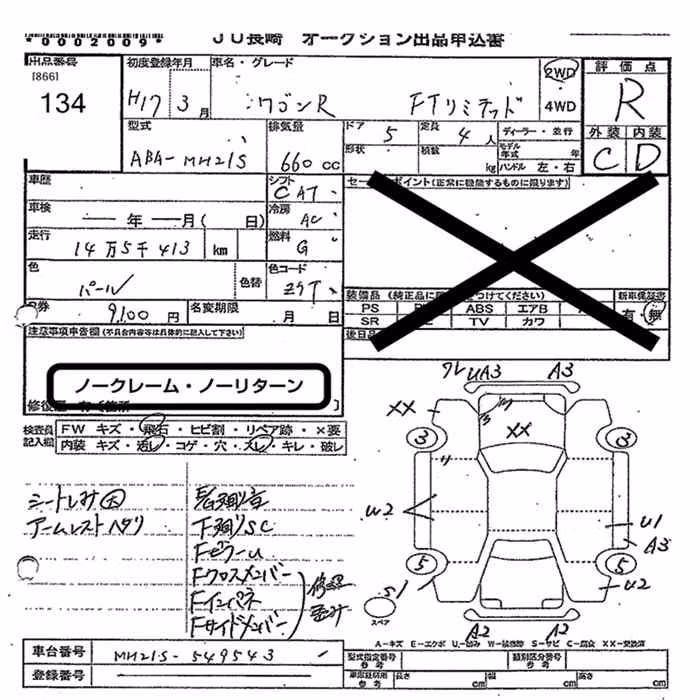 *0002009*
JU長崎 オークション出品申込書
出品番号
[866]
134
初度登録年月
H17 3月
車名・グレード
ワゴンR FTリミテッド
2WD
4WD
評価点
R
外装 内装
C D
型式
ABA-MH21S
排気量
660 cc
ドア 5
定員 4人
ディーラー・並行
形状
積数 kg
モデル年式 年
ハンドル 左・右
車歴
シフト CAT
セールスポイント(正常に機能するものに限ります)
車検
年 月( 日)
冷房 AC
走行
14万5千413 km
燃料 G
色
パール
色替
色コード ZゲT
装備品(純正品に限り をつけてください)
新車保証書
PS ABS エアB
SR TV カワ
有・無
R券
9,100円
名変期限 月 日
後日品
注意事項申告欄(不具合内容等は具体的に記入して下さい)
ノークレーム・ノーリターン
修復歴 有(箇所 )
検査員記入欄
FW キズ・飛石・ヒビ割・リペア跡・×要
内装 キズ・汚レ・コゲ・穴・スレ・キレ・破レ
シートしみ大
アームレストヘタリ
下廻りSC
FピラーU
Fクロスメンバー
Fインパネ
Fサイドメンバー
修理歪み
ワレ UA3 A3
XX
XX
3 3
U2
U1
A3
5 5
S1
U2
スペア
A2 A2
A-キズ E-エクボ U-凹み W-補修跡 S-サビ C-腐食 XX-交換済
車台番号 MH21S-549543
型式指定番号 参考
類別区分番号 参考
登録番号
車庫証明用 参考
長さ cm 幅 cm 高さ cm